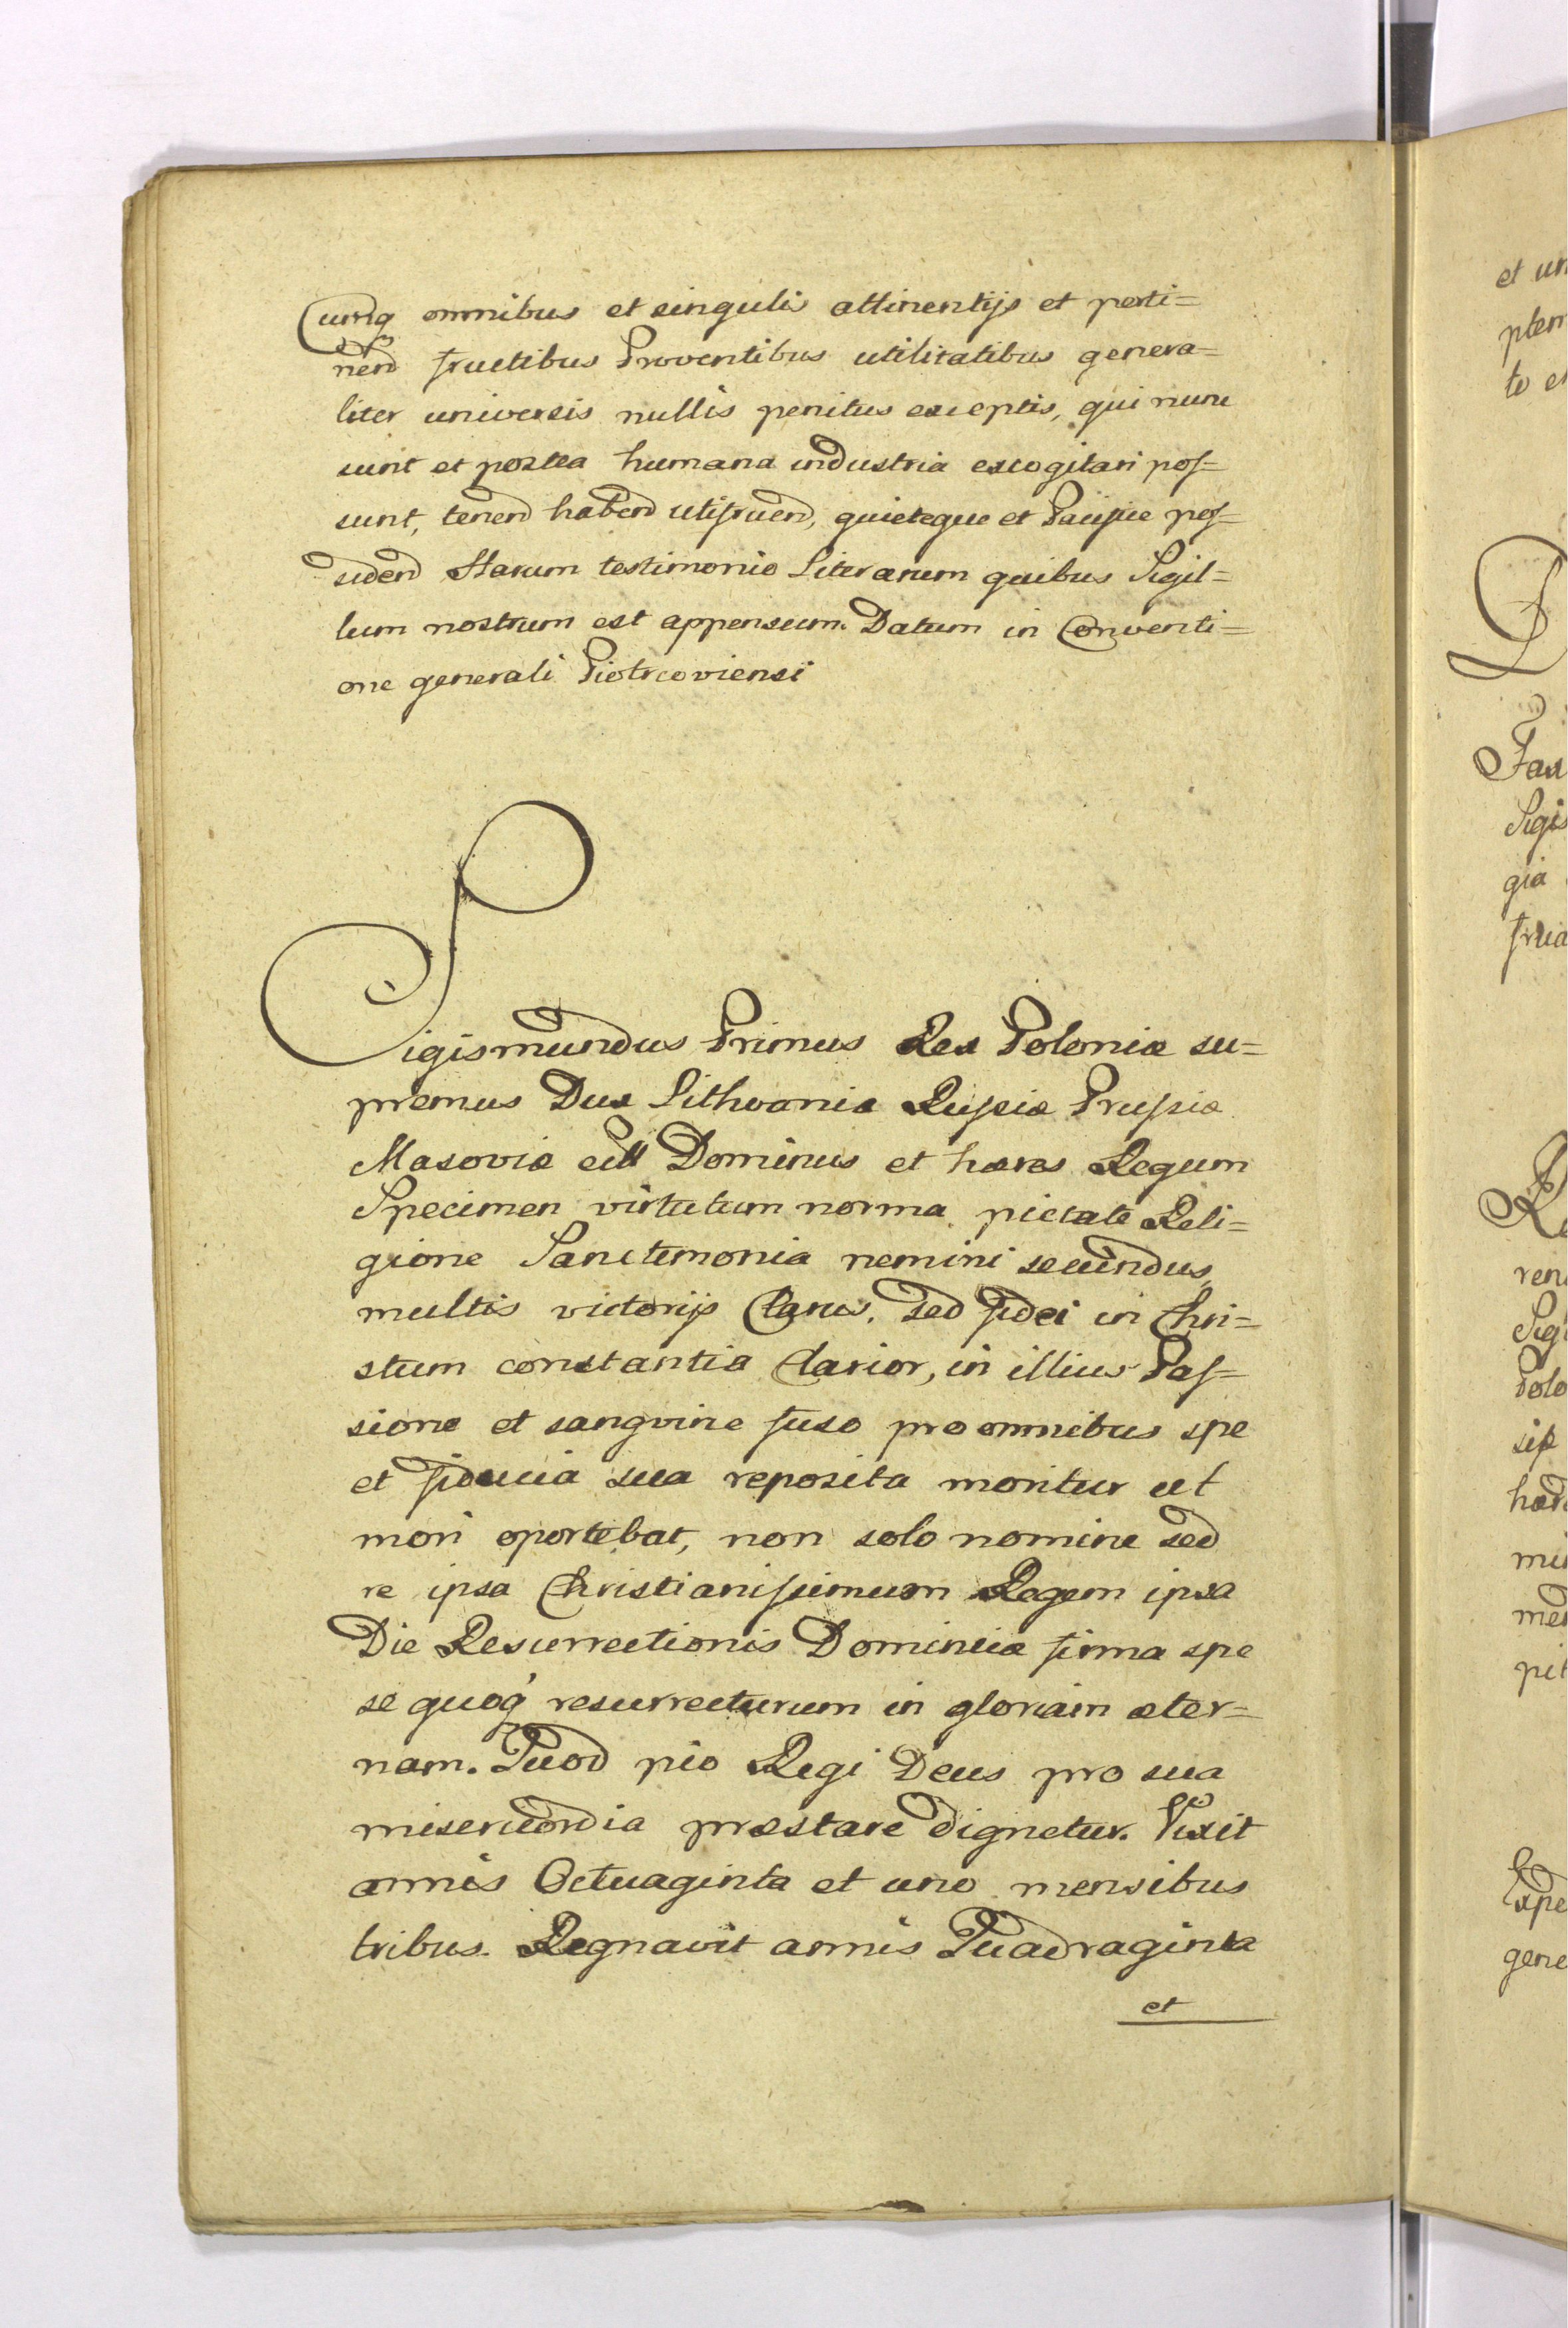 Cumq omnibus et singulis attinentijs et perti=
nend fructibus Proventibus utilitatibus genera=
liter universis nullis penitus exceptis, qui nunc
sunt et postea humana industria excogitari pos=
sunt, tenend habend utifruend, quieteque et Pacifice pos=
sidend Harum testimonio Literarum quibus Sigil=
lum nostrum est appensum. Datum in Conventi=
one generali Piotrcoviensi
Sigismundus Primus Rex Poloniæ su=
premus Dux Lithvaniæ Russiæ Prussiæ
Masoviæ Dominus et hæres Regum
Specimen virtutum norma pietate Reli=
gione Sanctimonia nemini secundus,
multis victorijs Clarus, sed fidei in Chri=
stum constantia Clarior, in illius Pas=
sione et sangvine fuso pro omnibus spe
et fiducia sua reposita moritur ut
mori oportebat, non solo nomine sed
re ipsa Christianissimum Regem ipsa
Die Resurrectionis Dominicæ firma spe
se quoq resurrecturum in gloriam æter=
nam. Quod pio Regi Deus pro sua
misericordia præstare dignetur. Vixit
annis Octuaginta et uno mensibus
tribus. Regnavit annis Quadraginta
et